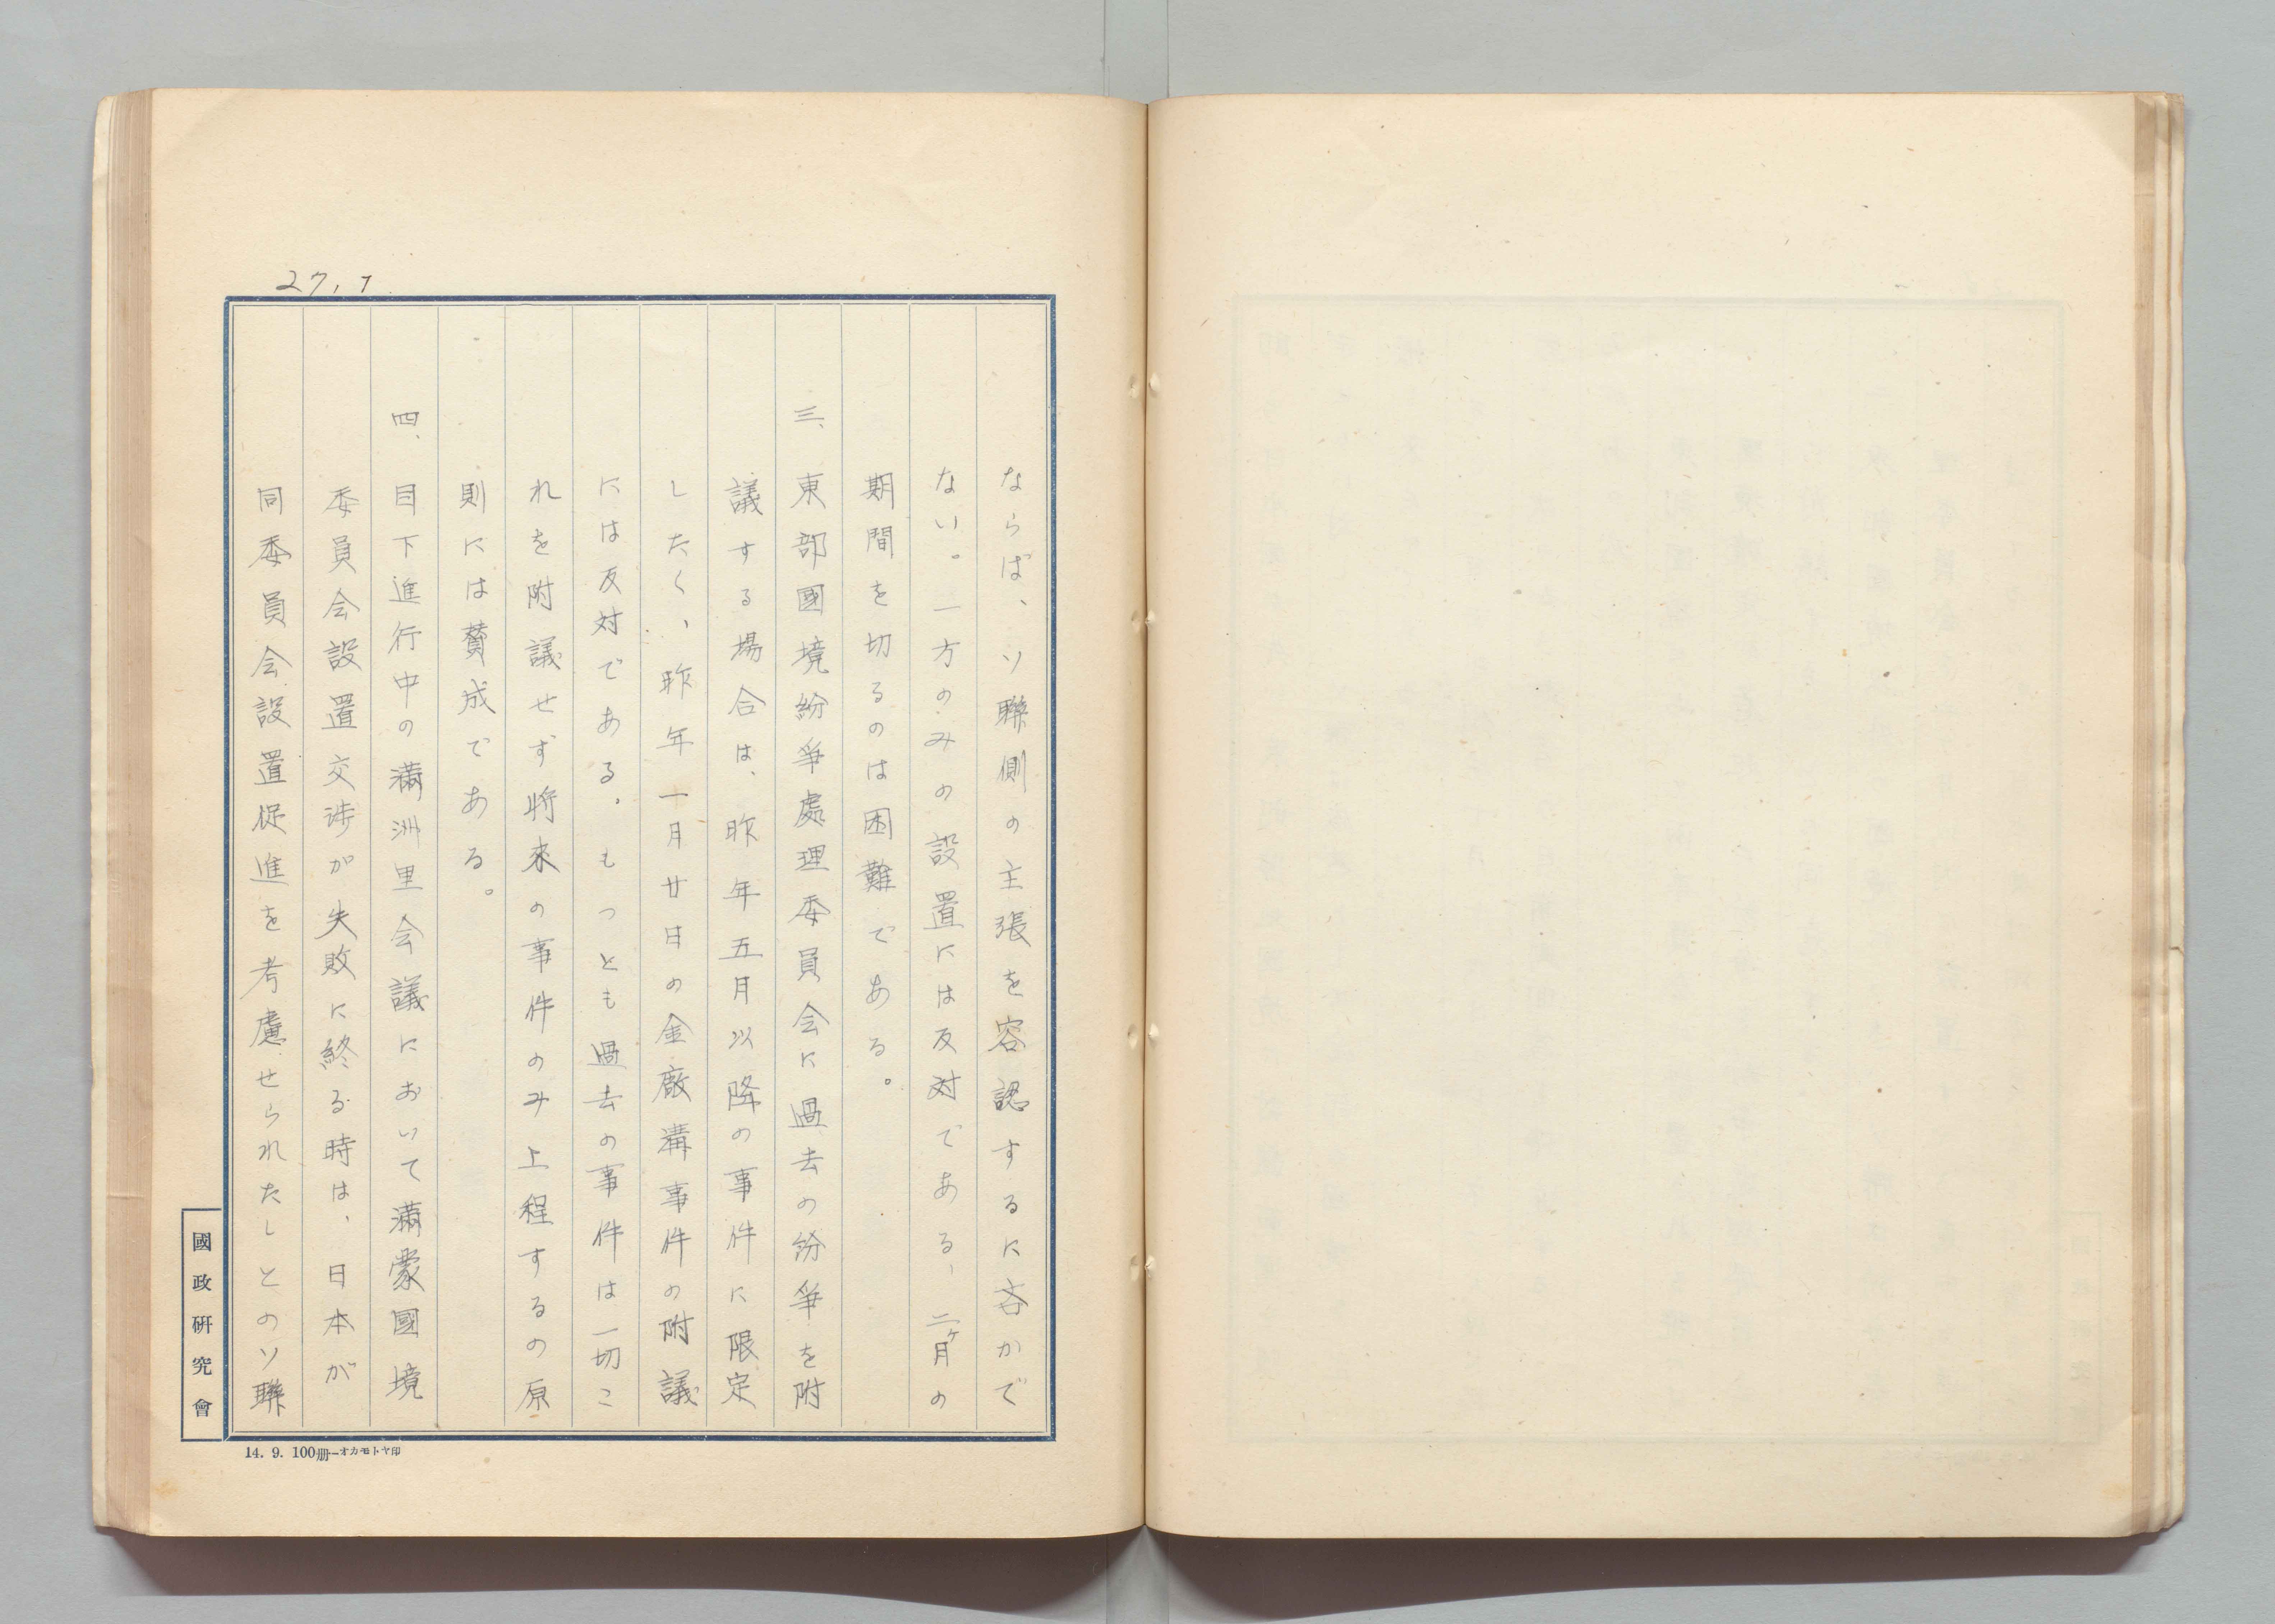 27.7
ならば、ソ聯側の主張を容認するに吝かで
ない。一方のみの設置には反対である、二ヶ月の
期間を切るのは困難である。
三、東部國境紛爭處理委員会に過去の紛爭を附
議する場合は、昨年五月以降の事件に限定
したく、昨年一月廿日の金廠溝事件の附議
には反対である。もつとも過去の事件は一切こ
れを附議せず将來の事件のみ上程するの原
則には賛成である。
四、目下進行中の満洲里会議において満蒙國境
委員会設置交渉が失敗に終る時は、日本が
同委員会設置促進を考慮せられたしとのソ聯
國政研究會
14. 9. 100册—オカモトヤ印